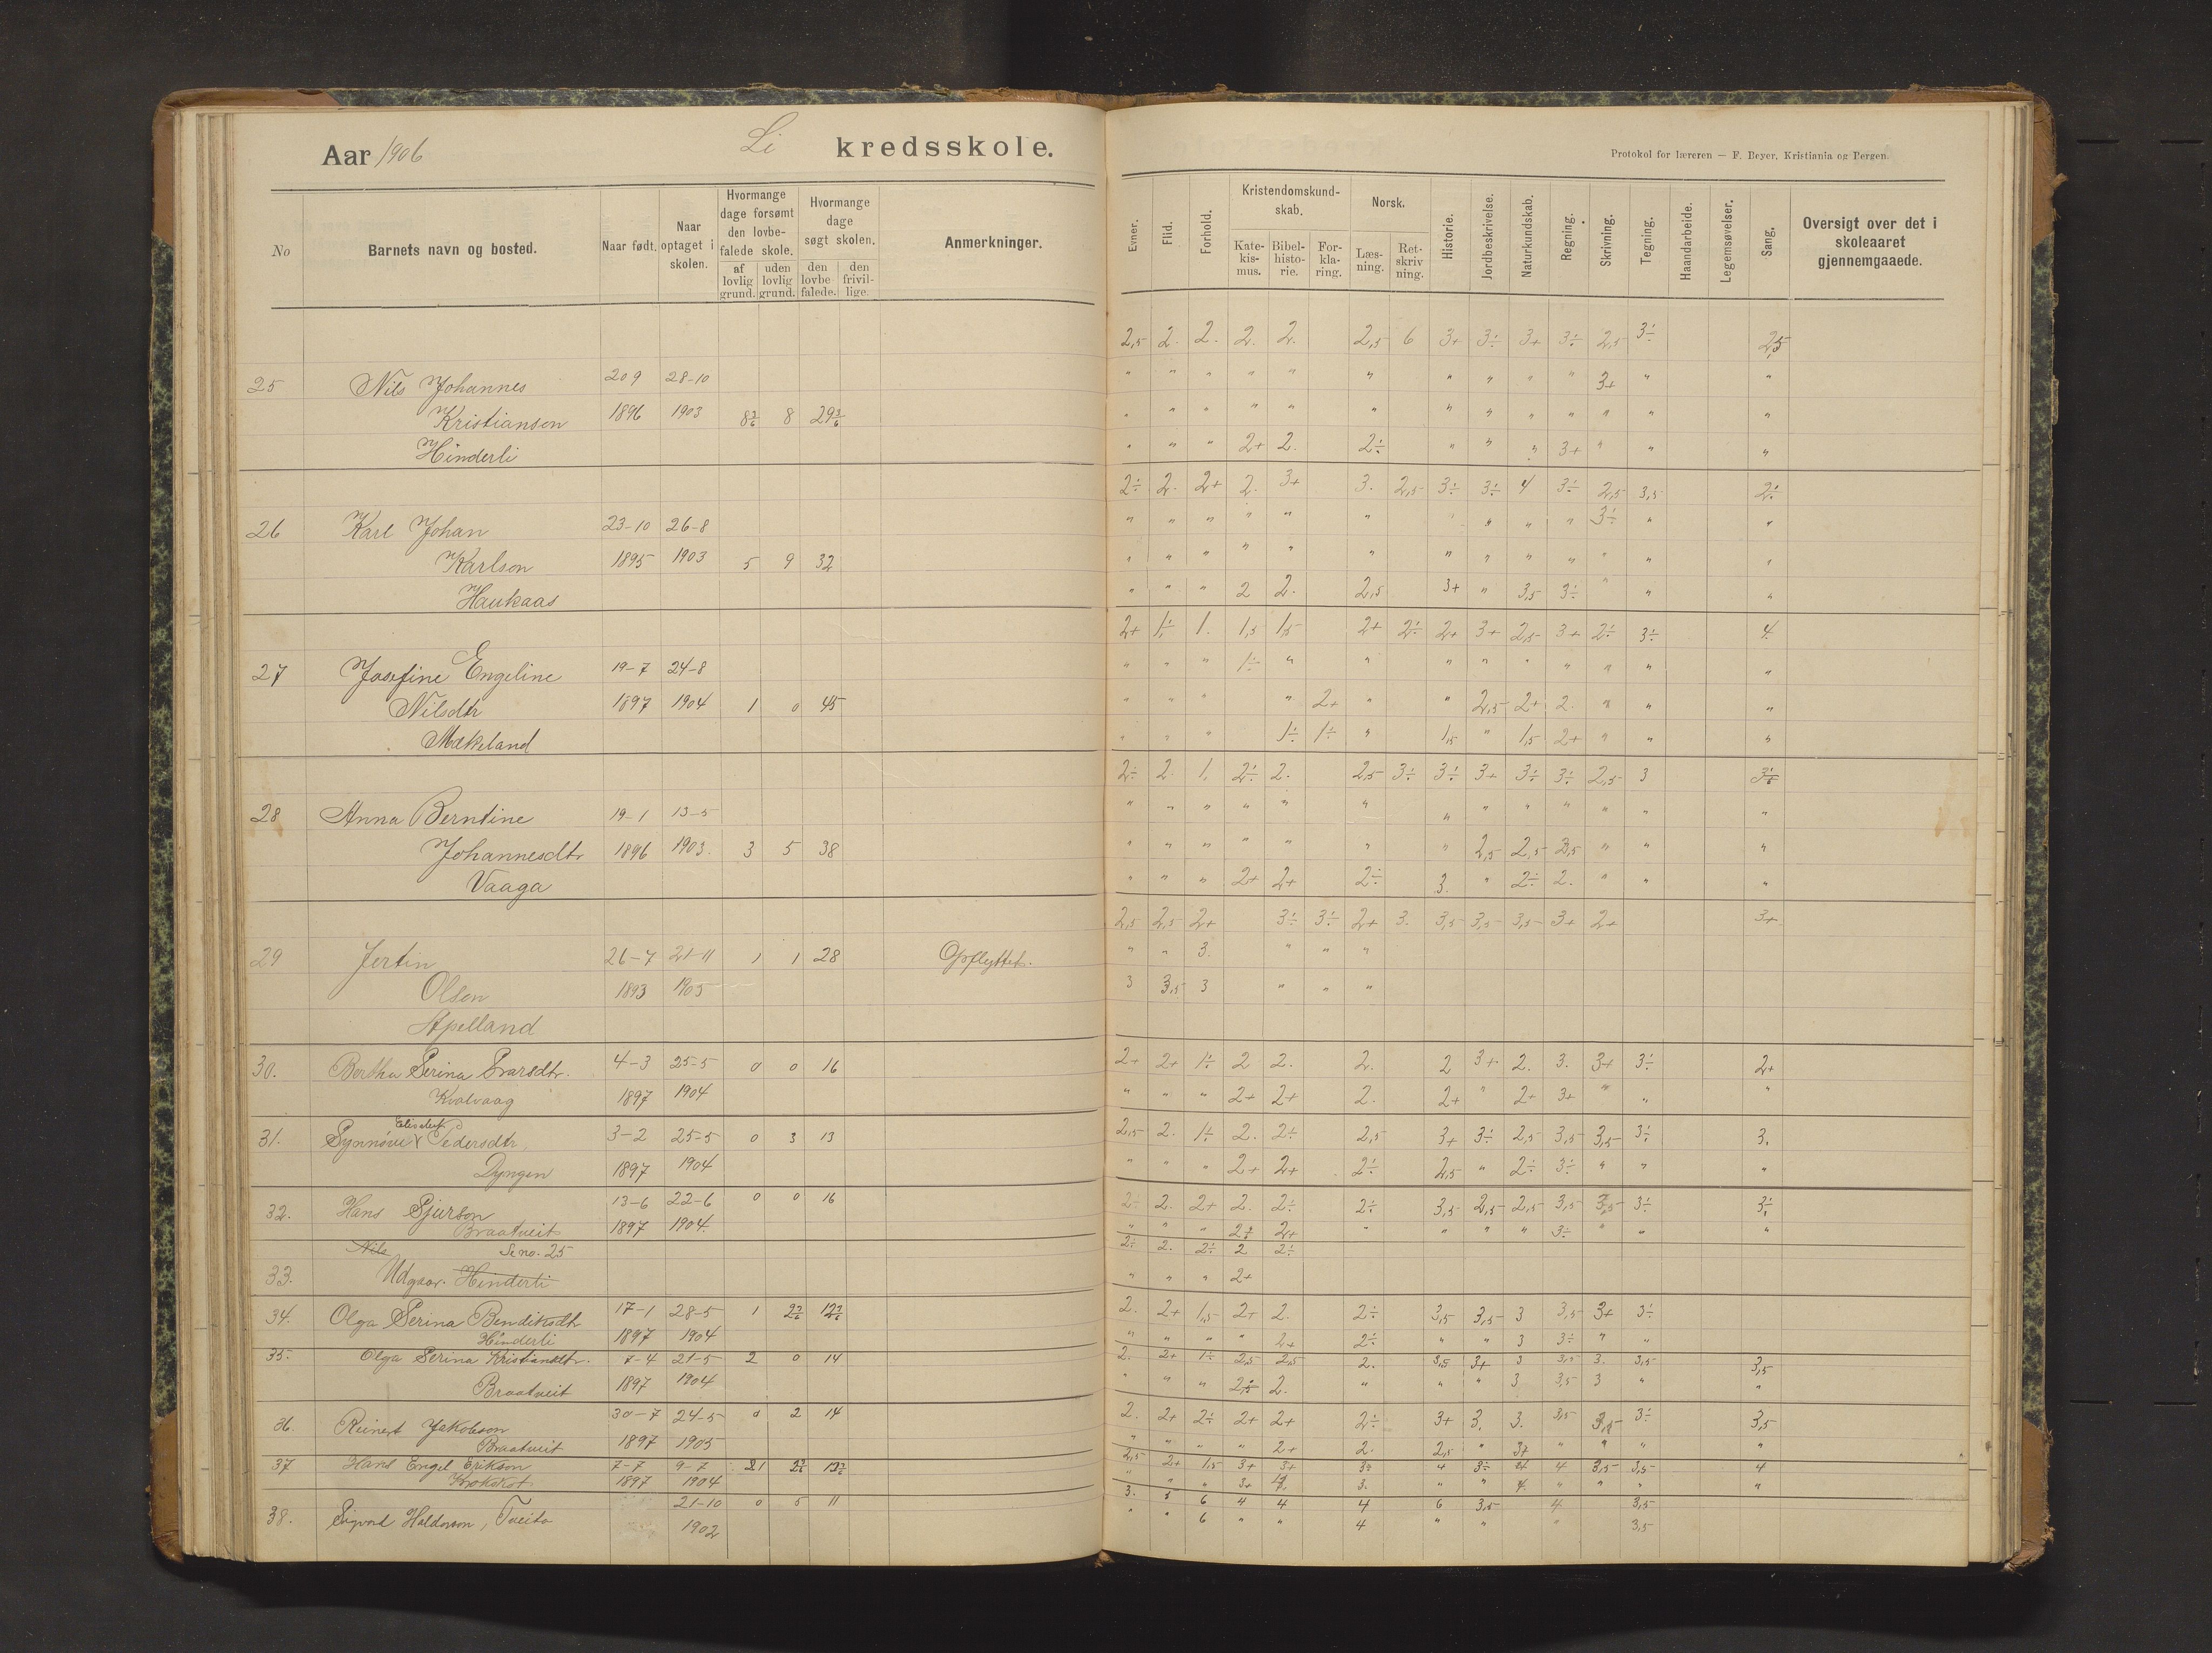 Aar 1906 Li kredsskole.
Protokol for læreren — F. Beyer, Kristiania og Bergen.
No
Barnets navn og bosted.
Naar født.
Naar optaget i skolen.
Hvormange dage forsømt den lovbefalede skole.
af lovlig grund.
uden lovlig grund.
Hvormange dage søgt skolen.
den lovbefalede.
den frivillige.
Anmerkninger.
Evner.
Flid.
Forhold.
Kristendomskundskab.
Katekismus.
Bibelhistorie.
Forklaring.
Norsk.
Læsning.
Retskrivning.
Historie.
Jordbeskrivelse.
Naturkundskab.
Regning.
Skrivning.
Tegning.
Haandarbeide.
Legemsøvelser.
Sang.
Oversigt over det i skoleaaret gjennemgaaede.
2,5 2. 2. 2. 2. 2,5 6 3+ 3÷ 3+ 3÷ 2,5 3÷ 2,5
25 Nils Johannes 20 9 28-10 " " " " " " " " " " 3+ " "
Kristiansen 1896 1903 8 3/6 8 29 3/6 " " " " " " " " " " " " "
Hinderli " " " 2+ 2. 2÷ " " " 3+ " " "
2÷ 2. 2+ 2. 3+ 3. 2,5 3÷ 3÷ 4 3÷ 2,5 3,5 2÷
26 Karl Johan 23-10 26-8 " " " " " " " " " " 3÷ " "
Karlson 1895 1903 5 9 32 " " " " " " " " " " " " "
Haukaas " " " 2 2. 2,5 3+ " 3,5 3÷ " " "
2+ 1÷ 1. 1,5 1,5 2+ 2÷ 2+ 3+ 2,5 3+ 2÷ 3÷ 4.
27 Josefine Engeline 19-7 24-8 " " " 1÷ " " " " " " " " "
Nilsdtr 1897 1904 1 0 45 " " " " 2+ " " 2,5 2+ 2. " " "
Mækeland " " " 1÷ 1÷ " 1,5 " 1,5 2+ " " "
2÷ 2. 1. 2÷ 2. 2,5 3÷ 3÷ 3+ 3÷ 3÷ 2,5 3
28 Anna Berntine 19-1 13-5 " " " " " " " " " " " " "
Johannesdtr 1896 1903. 3 5 38 " " " " " " " 2,5 2,5 " " "
Vaaga " " " 2+ 2+ 2÷ 3. " 2÷ 2. " " "
2,5 2,5 2+ 3÷ 3÷ 2+ 3. 3,5 3,5 3,5 3+ 2+ 3+
29 Jertin 26-7 21-11 1 1 28 Opflyttet. " " 3. " " "
Olsen 1893 1905 3 3,5 3 " " "
Apelland
30. Bertha Serina Ivarsdtr. 4-3 25-5 0 0 16 2+ 2+ 1÷ 2 2. 2. 2 3+ 2. 3. 3+ 3÷ 2+
Kvalvaag 1897 1904 " " " 2+ 2+ 2. 2+ " 2+ 3+ " " "
31. Synnøve Pedersdtr 3-2 25-5 0 3 13 2,5 2. 1÷ 2. 2÷ 2,5 3+ 3÷ 2,5 3,5 3,5 3÷ 3.
Dyngen 1897 1904 " " " 2+ 2+ 2÷ 2,5 " 2÷ 3÷ " " "
32. Hans Sjurson 13-6 22-6 0 0 16 2÷ 2. 2+ 2. 2÷ 2÷ 3,5 2,5 2,5 3,5 3,5 3÷ 3÷
Braatveit 1897 1904. " " " 2+ " " " " 3÷ " " "
Nils Se no. 25 2÷ 2. 2÷ 2 2÷
33. Udgaar. Hinderli " " " 2+
34. Olga Serina Bendiksdtr 17-1 28-5 1 2 2/6 12 2/6 2. 2+ 1,5 2+ 2. 2÷ 3,5 3,5 3 3,5 3+ 3÷
Hinderli 1897 1904 " " " " 2+ 2÷ " " 3 3÷ " "
35. Olga Serina Kristiansdtr. 7-4 21-5 2 0 14 2. 2+ 1÷ 2,5 2,5 2. 3,5 3+ 3 3,5 3. 3,5 3,5
Braatveit 1897 1904 " " " 2. " " " 3 3,5 3 " "
36. Reinert Jakobson 30-7 24-5 0 2 14 2. 2+ 2÷ 2+ 2+ 2÷ 3+ 3. 3. 3,5 3÷ 3,5
Braatveit 1897 1905 " " " " 2+ 2. 2,5 " " " " "
37 Hans Engel Erikson 7-7 9-7 2,5 2+ 1,5 3+ 3+ 3÷ 4 3÷ 4 4 3,5 3,5 4
1897 1904 " " " 3+ 3. " " 4 " " " "
38. Sigvard Haldorson, Tveita 21-10 0 5 11 3. 6 4 4 4 6 3,5 4. 3,5
1902 " " 6 " " 4 " " " 3,5